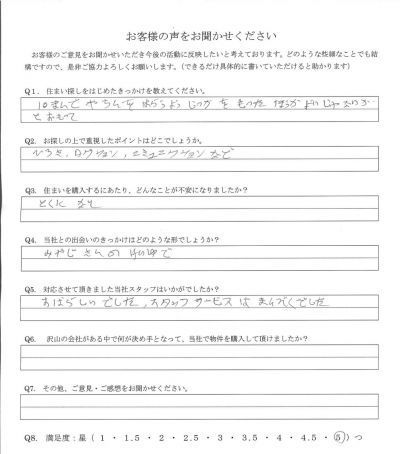 お客様の声をお聞かせください
お客様のご意見をお聞かせいただき今後の活動に反映したいと考えております。どのような些細なことでも結
構ですので、是非ご協力よろしくお願いします。（できるだけ具体的に書いていただけると助かります）
Q1. 住まい探しをはじめたきっかけを教えてください。
やちんを はらうより じっか を もった ほうが よい
とおもって
Q2. お探しの上で重視したポイントはどこでしょうか。
ひろさ、ロケーション、コミュニケーションなど
Q3. 住まいを購入するにあたり、どんなことが不安になりましたか？
とくに なし
Q4. 当社との出会いのきっかけはどのような形でしょうか？
みやじ さんの
Q5. 対応させて頂きました当社スタッフはいかがでしたか？
すばらしいでした、スタッフ サービスは まんぞくでした
Q6. 沢山の会社がある中で何が決め手となって、当社で物件を購入して頂けましたか？
Q7. その他、ご意見・ご感想をお聞かせください。
Q8. 満足度：星（ 1 ・ 1.5 ・ 2 ・ 2.5 ・ 3 ・ 3.5 ・ 4 ・ 4.5 ・ 5 ）つ